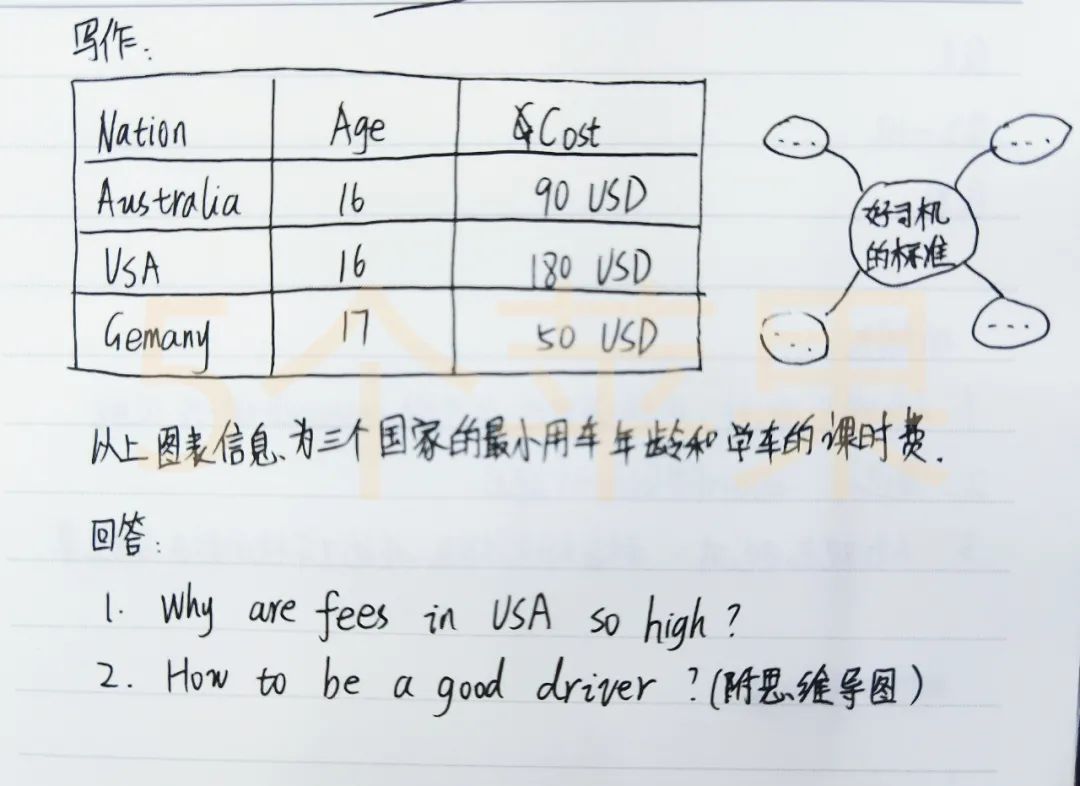 写作:
Nation Age Cost
Australia 16 90 USD
USA 16 180 USD
Gemany 17 50 USD
...
...
好司机
的标准
...
...
5个苹果
以上图表信息为三个国家的最小用车年龄和学车的课时费.
回答:
1. Why are fees in USA so high?
2. How to be a good driver?(附思维导图)